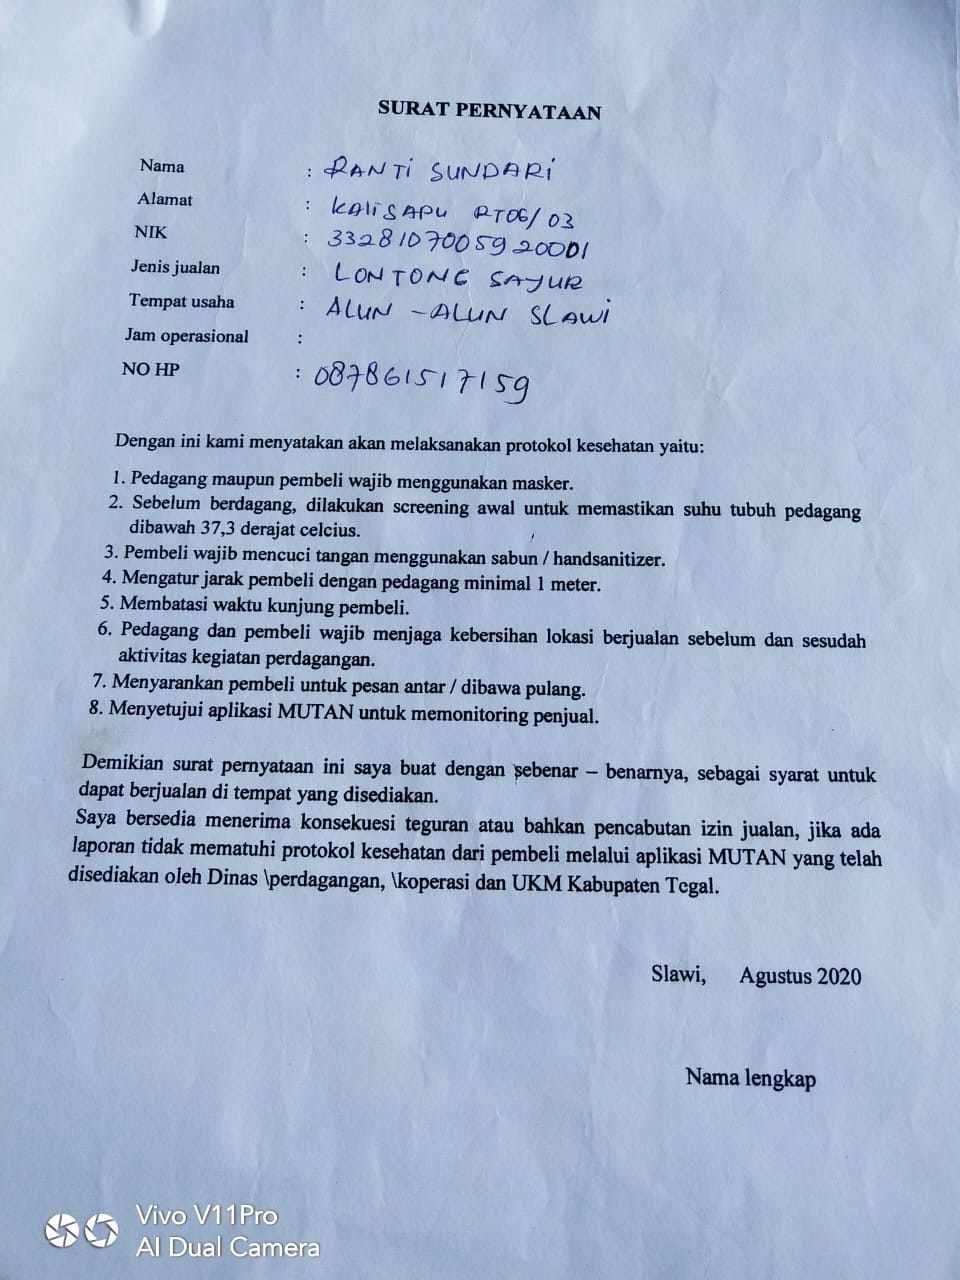 SURAT PERNYATAAN
Nama : RANTi SUNDARi
Alamat : KALiSAPU RT06/03
NIK : 3328107005920001
Jenis jualan : LONTONG SAYUR
Tempat usaha : ALUN-ALUN SLAWi
Jam operasional :
NO HP : 087861517159
Dengan ini kami menyatakan akan melaksanakan protokol kesehatan yaitu:
1. Pedagang maupun pembeli wajib menggunakan masker.
2. Sebelum berdagang, dilakukan screening awal untuk memastikan suhu tubuh pedagang
dibawah 37,3 derajat celcius.
3. Pembeli wajib mencuci tangan menggunakan sabun / handsanitizer.
4. Mengatur jarak pembeli dengan pedagang minimal 1 meter.
5. Membatasi waktu kunjung pembeli.
6. Pedagang dan pembeli wajib menjaga kebersihan lokasi berjualan sebelum dan sesudah
aktivitas kegiatan perdagangan.
7. Menyarankan pembeli untuk pesan antar / dibawa pulang.
8. Menyetujui aplikasi MUTAN untuk memonitoring penjual.
Demikian surat pernyataan ini saya buat dengan sebenar – benarnya, sebagai syarat untuk
dapat berjualan di tempat yang disediakan.
Saya bersedia menerima konsekuesi teguran atau bahkan pencabutan izin jualan, jika ada
laporan tidak mematuhi protokol kesehatan dari pembeli melalui aplikasi MUTAN yang telah
disediakan oleh Dinas \perdagangan, \koperasi dan UKM Kabupaten Tegal.
Slawi, Agustus 2020
Nama lengkap
Vivo V11Pro
AI Dual Camera